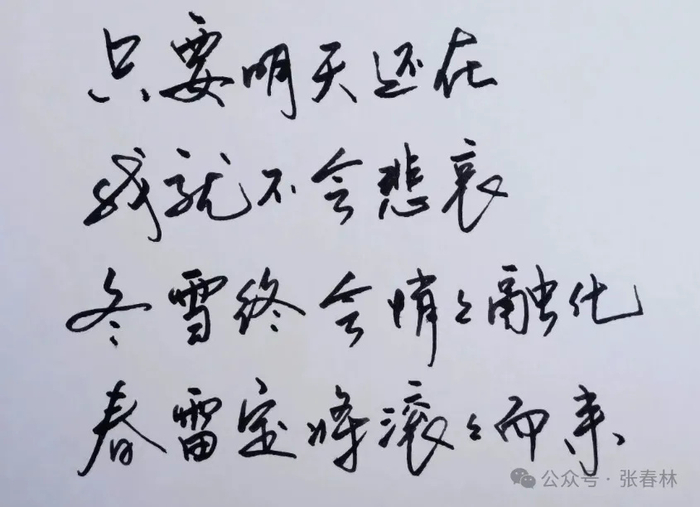 只要明天还在
我就不会悲哀
冬雪终会悄々融化
春雷定将滚々而来
公众号·张春林